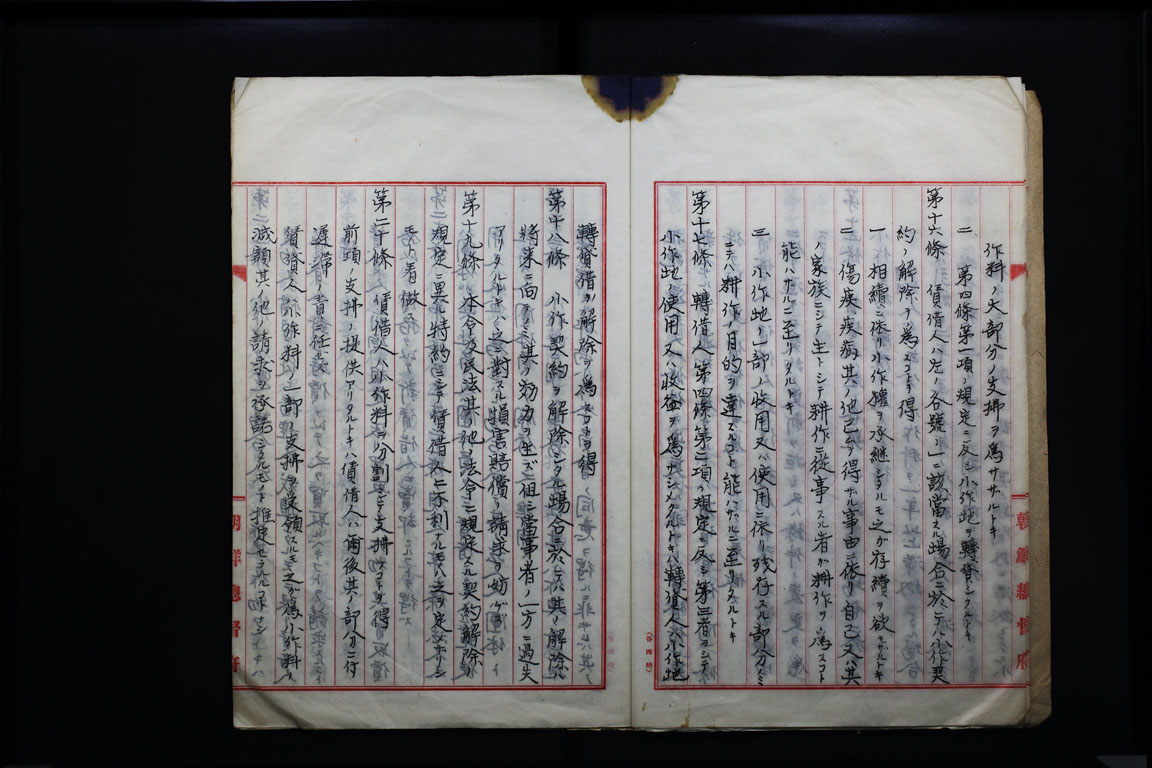 作料ノ大部分ノ支拂ヲ爲サザルトキ
二 第四條第一項ノ規定ニ反シ小作地ヲ轉貸シタルトキ
第十六條 賃借人ハ左ノ各號ノ一ニ該當スル場合ニ於テハ小作契
約ノ解除ヲ爲スコトヲ得
一 相續ニ依リ小作權ヲ承継シタルモ之ガ存續ヲ欲セザルトキ
二 傷痍疾病其ノ他已ムヲ得ザル事由ニ依リ自己又ハ其
ノ家族ニシテ主トシテ耕作ニ從事スル者ガ耕作ヲ爲スコト
能ハザルニ至リタルトキ
三 小作地ノ一部ノ收用又ハ使用ニ依リ残存スル部分ノミ
ニテハ耕作ノ目的ヲ達スルコト能ハザルニ至リタルトキ
第十七條 轉借人第四條第二項ノ規定ニ反シ第三者ヲシテ
小作地ノ使用又ハ收益ヲ爲サシメタルトキハ轉貸人ハ小作地
轉貸借ノ解除ヲ爲スコトヲ得
第十八條 小作契約ヲ解除シタル場合ニ於テハ其ノ解除ハ
將來ニ向テノミ其ノ効力ヲ生ズ但シ當事者ノ一方ニ過失
アリタルトキハ之ニ對スル損害賠償ノ請求ヲ妨ゲズ
第十九條 本令及民法其ノ他ノ法令ニ規定スル契約解除
ノ規定ニ異ル特約ニシテ賃借人ニ不利ナルモノハ之ヲ定メザリシ
モノト看做ス
第二十條 賃借人ハ小作料ヲ分割シテ支拂フコトヲ得
前項ノ支拂ノ提供アリタルトキハ賃借人ハ爾後其ノ部分ニ付
遲滯ノ責ニ任ゼズ
賃貸人小作料ノ一部ノ支拂ヲ受領スルモ之ガ爲小作料ノ
減額其ノ他ノ請求ヲ承諾シタルモノト推定セラルルコトナシ
朝鮮總督府
朝鮮總督府